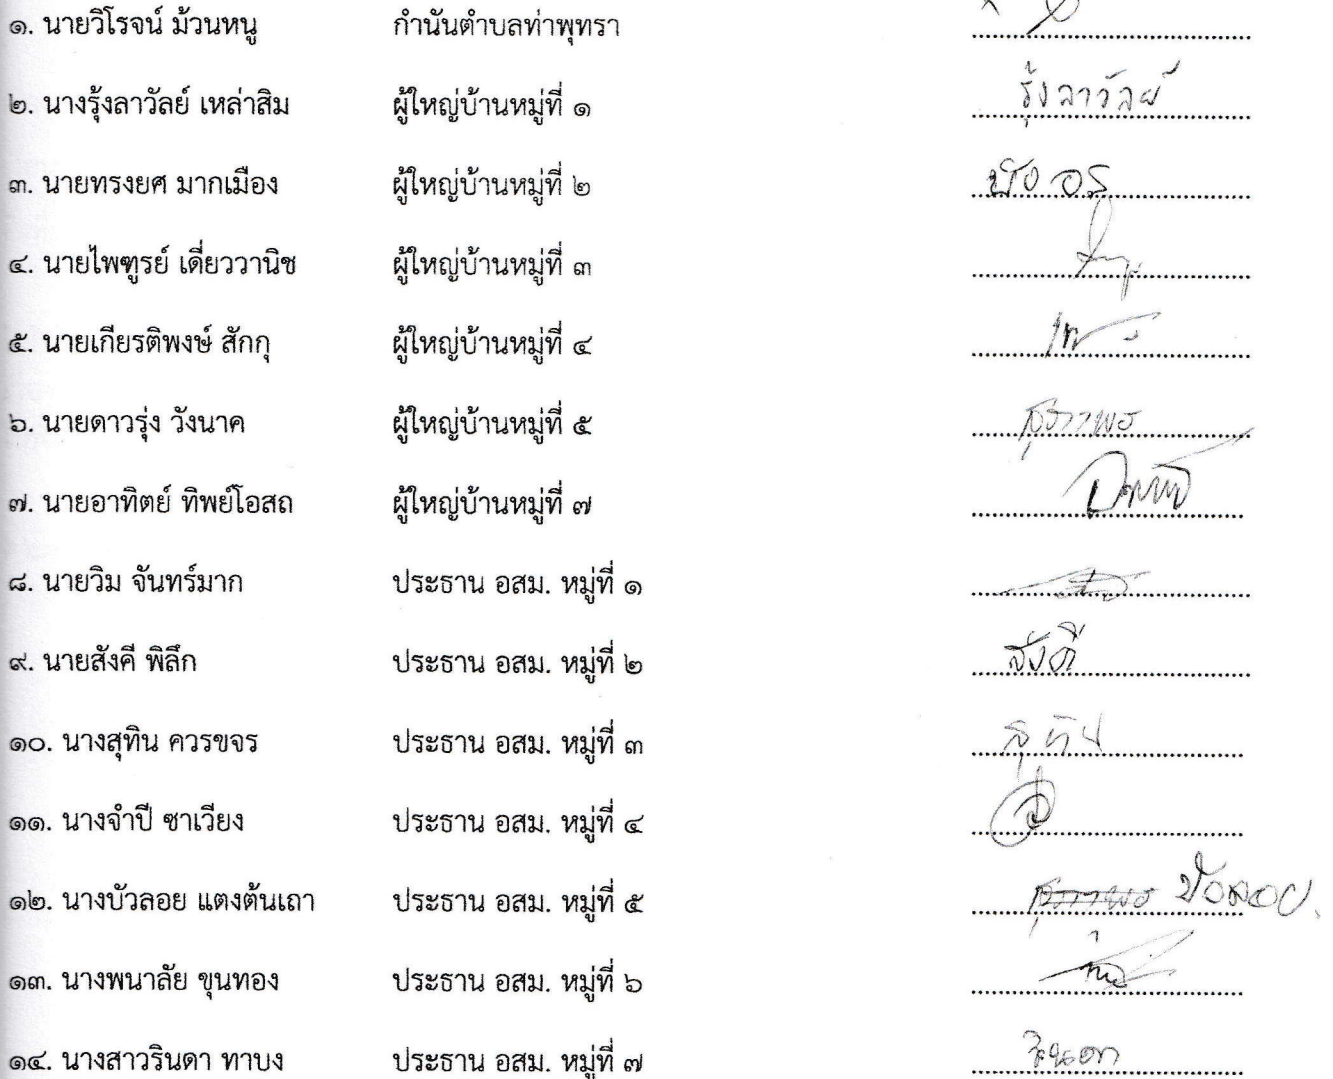 ๑. นายวิโรจน์ ม้วนหนู กำนันตำบลท่าพุทรา
๒. นางรุ้งลาวัลย์ เหล่าสิม ผู้ใหญ่บ้านหมู่ที่ ๑ รุ้งลาวัลย์
๓. นายทรงยศ มากเมือง ผู้ใหญ่บ้านหมู่ที่ ๒ บังอร
๔. นายไพฑูรย์ เดี่ยววานิช ผู้ใหญ่บ้านหมู่ที่ ๓
๕. นายเกียรติพงษ์ สักกุ ผู้ใหญ่บ้านหมู่ที่ ๔
๖. นายดาวรุ่ง วังนาค ผู้ใหญ่บ้านหมู่ที่ ๕ สุภาพร
๗. นายอาทิตย์ ทิพย์โอสถ ผู้ใหญ่บ้านหมู่ที่ ๗
๘. นายวิม จันทร์มาก ประธาน อสม. หมู่ที่ ๑
๙. นายสังคี พิลึก ประธาน อสม. หมู่ที่ ๒ สังคี
๑๐. นางสุทิน ควรขจร ประธาน อสม. หมู่ที่ ๓ สุทิน
๑๑. นางจำปี ซาเวียง ประธาน อสม. หมู่ที่ ๔
๑๒. นางบัวลอย แตงต้นเถา ประธาน อสม. หมู่ที่ ๕ สุภาพร บัวลอย
๑๓. นางพนาลัย ขุนทอง ประธาน อสม. หมู่ที่ ๖
๑๔. นางสาวรินดา ทาบง ประธาน อสม. หมู่ที่ ๗ รินดา